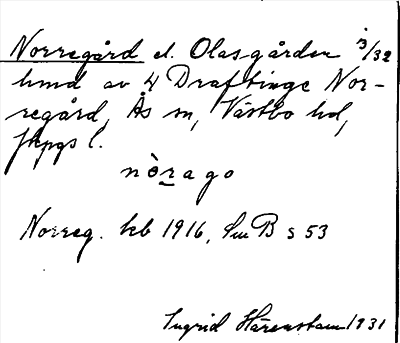 Norregård el. Olasgården 3/32
hmd av 4 Draftinge Nor-
regård, Ås sn, Västbo hd,
Jkpgs l.
nòrago
Norreg. kb 1916, Sm B s 53
Ingrid Härenstam 1931